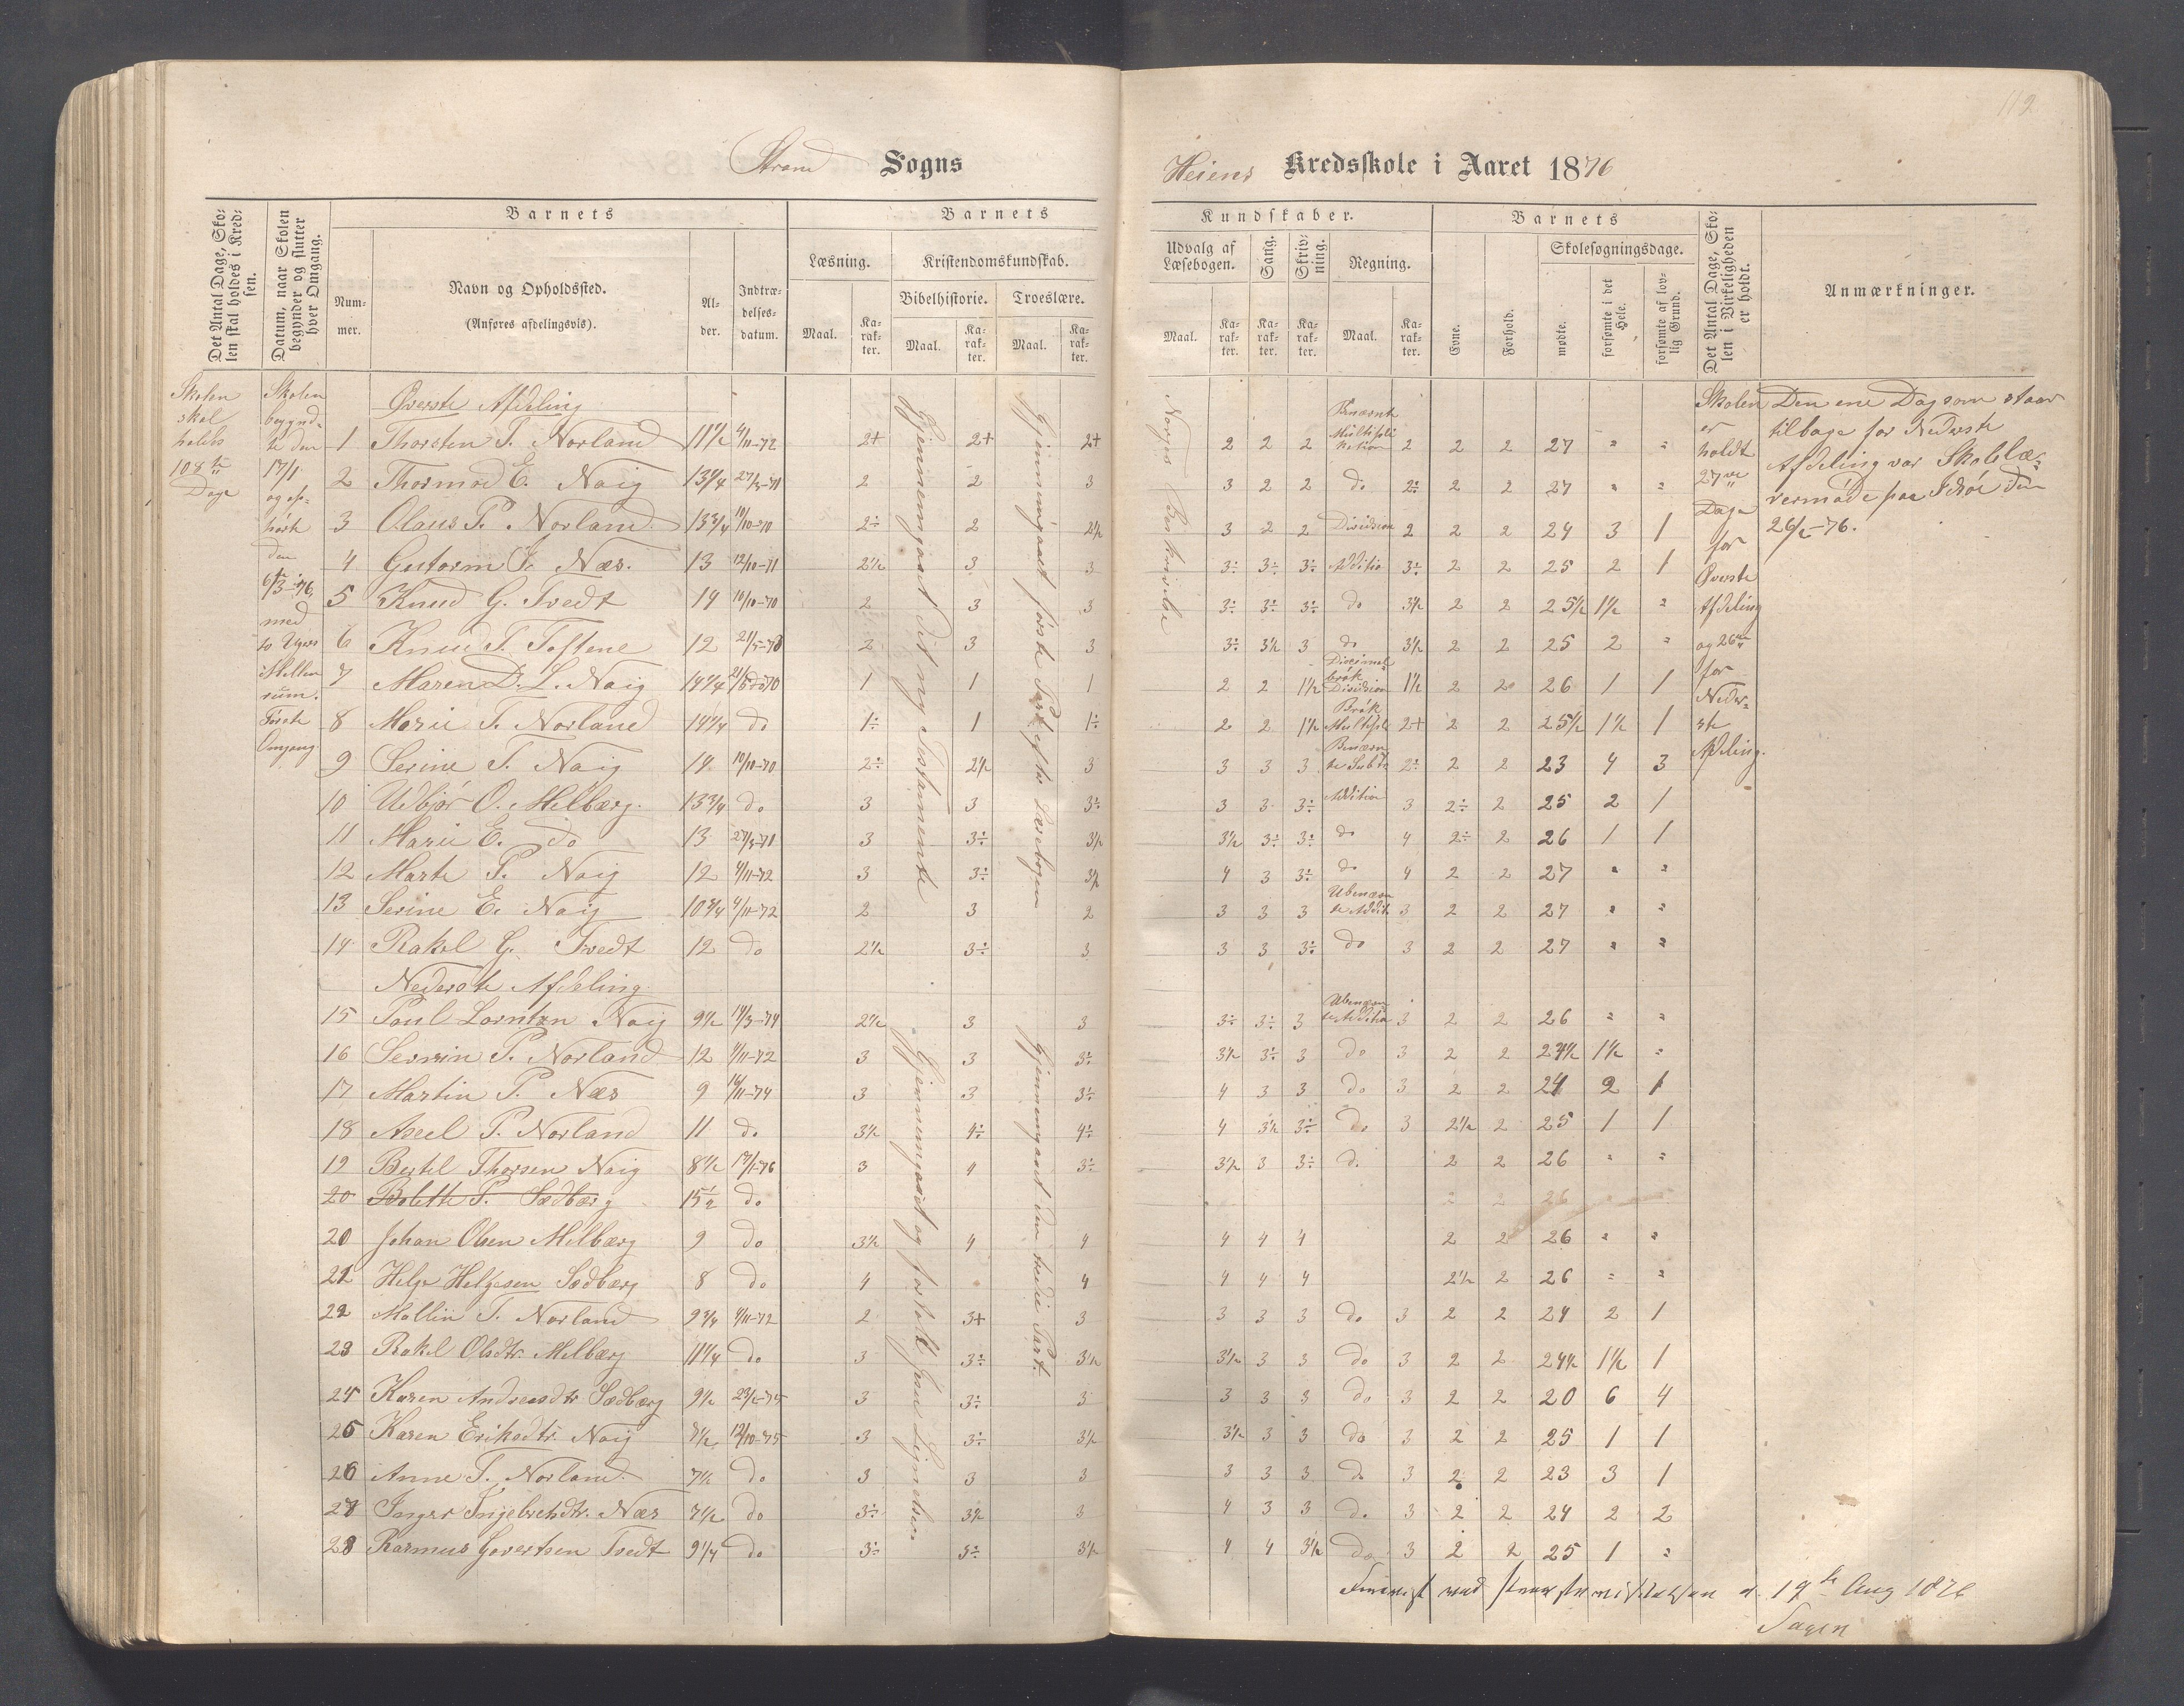 112
Strand Sogns
Heiens Kredsskole i Aaret 1876
Det Antal Dage, Skolen skal holdes i Kredsen.
Datum, naar Skolen begynder og slutter hver Omgang.
Barnets
Nummer.
Navn og Opholdssted.
(Anføres afdelingsvis).
Alder.
Indtrædelsesdatum.
Barnets
Læsning.
Kristendomskundskab.
Bibelhistorie.
Troeslære.
Maal.
Karakter.
Maal.
Karakter.
Maal.
Karakter.
Kundskaber.
Udvalg af Læsebogen.
Sang.
Skrivning.
Regning.
Maal.
Karakter.
Karakter.
Karakter.
Maal.
Karakter.
Barnets
Evne.
Forhold.
Skolesøgningsdage.
mødte.
forsømte i det Hele.
forsømte af lovlig Grund.
Det Antal Dage, Skolen i Virkeligheden er holdt.
Anmærkninger.
Skolen skal holdes 108 Dage
Skolen begyndte den 17/1 og ophørte den 6/3-76, med Ugers Mellemrum. Første Omgang.
Gjennemgaaet det ny Testamente
Gjennemgaaet første Part efter Læsebogen
Norges Beskrivelse
Skolen er holdt 27 Dage for Øverste Afdeling og 26 for Nederste Afdeling.
Den ene Dag som staar
tilbage for Nederste
Afdeling var Skolelæ-
rermøde paa Idsøe den
26/2-76.
Øverste Afdeling
1 Thorsten T. Norland 11½ 4/11-72 2+ 2+ 2+ 2 2 2 Benævnt Multiplikation 2 2 2 27 " "
2 Thormod E. Naig 13¼ 27/3-71 2 2 3 3 2 2 do 2÷ 2 2 27 " "
3 Olaus P. Norland 13¾ 10/10-70 2÷ 2 2½ 3 2 2 Division 2 2 2 24 3 1
4 Gutorm I. Næs. 13 12/10-71 2½ 3 3 3÷ 3÷ 3÷ Additio 3÷ 2 2 25 2 1
5 Knud G. Tvedt 14 10/10-70 2 3 3 3÷ 3÷ 3÷ do 3½ 2 2 25½ 1½ "
6 Knud T. Toftene 12 2 3 3 3÷ 3½ 3 do 3½ 2 2 25 2 "
7 Maren D. L. Naig 14¼ 1 1 1 2 2 1½ Decimalbrøk Division 1½ 2 2 26 1 1
8 Marie T. Norland 14¼ do 1÷ 1 1÷ 2 2 1½ Brøk Multipli 2+ 2 2 25½ 1½ 1
9 Serine T. Naig 14 10/10-70 2÷ 2½ 3 3 3 3 Benævnte Subt: 2÷ 2 2 23 4 3
10 Udbjør O. Melbærg. 13¾ do 3 3 3÷ 3 3 3÷ Addition 3 2÷ 2 25 2 1
11 Marie E. do 13 27/3-71 3 3÷ 3½ 3½ 3÷ 3÷ do 4 2÷ 2 26 1 1
12 Marte P. Naig 12 4/11-72 3 3÷ 3½ 4 3 3÷ do 4 2 2 27 " "
13 Serine E. Naig 10¾ 4/11-72 2 3 2 3 3 3 Ubenævnte Addit. 3 2 2 27 " "
14 Rakel G. Tvedt 12 do 2½ 3÷ 3 3 3 3÷ do 3 2 2 27 " "
Nederste Afdeling
Gjennemgaaet og fortalt Jesu Lignelser.
Gjennemgaaet den tredie Part.
15 Poul Lorntsen Naig 9½ 14/3-74 2½ 3 3 3÷ 3÷ 3 Ubenævnte Additio 3 2 2 26 " "
16 Severin P. Norland 12 4/11-72 3 3 3÷ 3½ 3÷ 3 do 3 2 2 24½ 1½ "
17 Martin P. Næs 9 16/11-74 3 3 3÷ 4 3 3 do 3 2 2 24 2 1
18 Axel P. Norland 11 do 3½ 4÷ 4÷ 4 3½ 3÷ do 3 2½ 2 25 1 1
19 Bertel Thorsen Naig 8½ 17/1-76 3 4 3÷ 3½ 3 3÷ d. 2 2 26 " "
20 Bolette P. Sædbærg 15½ do 2 2 26
20 Johan Olsen Melbærg 9 do 3½ 4 4 4 4 4 2 2 26 " "
21 Helge Helgesen Sædbærg 8 do 4 4 4 4 4 2½ 2 26 " "
22 Mallin T. Norland 9¾ 4/11-72 2 3+ 3 3 3 3 do 3 2 2 24 2 1
23 Rakel Olsdtr. Melbærg 11¼ do 3 3÷ 3½ 3½ 3 3 do 3 2 2 24½ 1½ 1
24 Karen Andreasdtr Sædbærg 9½ 23/2-75 3 3÷ 3 3 3 3 do 3 2 2 20 6 4
25 Karen Eriksdtr. Naig 12/10-75 3 3÷ 3½ 3½ 3 3 do 3 2 2 25 1 1
26 Anne T. Norland. 7½ do 3 3 3 3 3 3 do 3 2 2 23 3 1
27 Inger Ingebrehdtr. Næs 7½ do 3÷ 3½ 3 4 3 3 do. 3 2 2 24 2 2
28 Rasmus Govertsen Tvedt 9¼ do 3÷ 3÷ 3½ 4 4 3½ do. 3 2 2 25 1 "
Forevist ved d. 19 Aug 1876